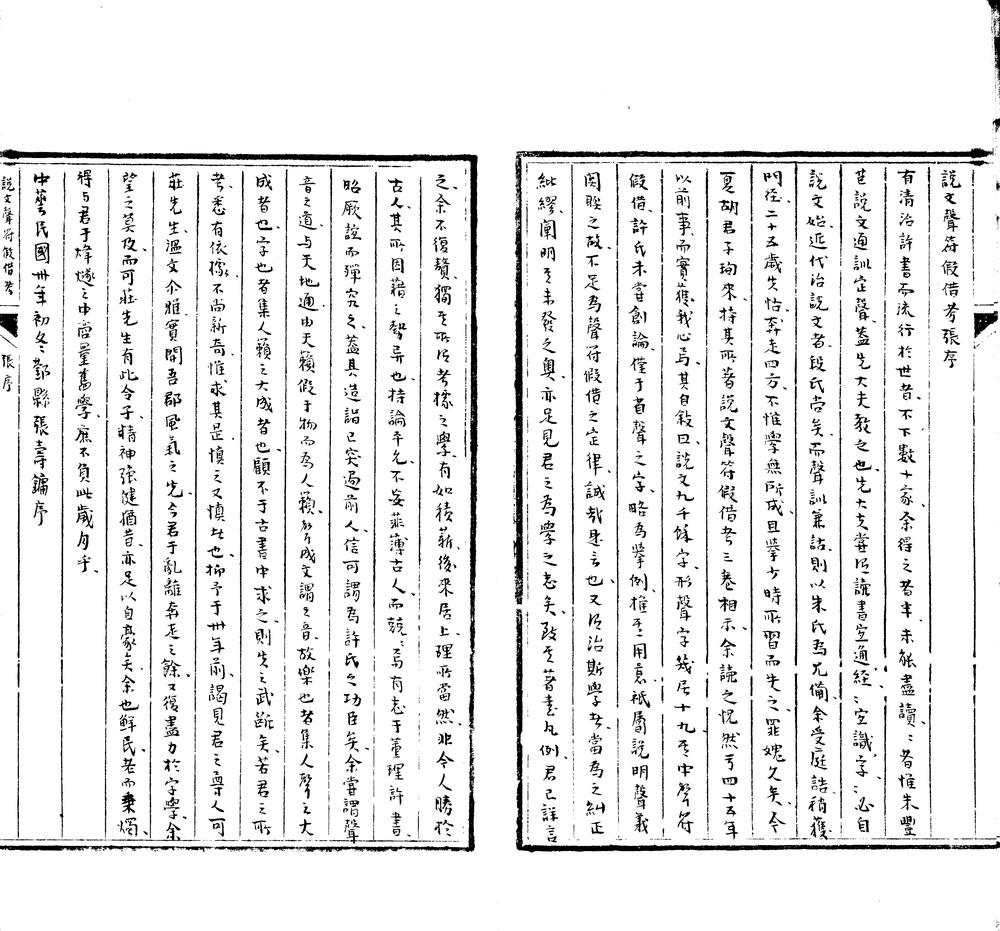 說文聲符假借考張序
有清治許書而流行於世者、不下數十家、余得之者半、未能盡讀、讀者惟朱豐
芑說文通訓定聲、蓋先大夫教之也、先大夫嘗曰、讀書宜通經、經宜識字、字必自
說文始、近代治說文者、段氏尚矣、而聲訓兼詁、則以朱氏為尤備、余受庭誥、稍獲
門徑、二十五歲失怙、奔走四方、不惟學無所成、且舉少時所習而失之、罪媿久矣、今
夏胡君子珣來、持其所著說文聲符假借考三卷相示、余讀之怳然、亏四十五年
以前事、而實獲我心焉、其自敘曰、說文九千餘字、形聲字幾居十九、其中聲符
假借、許氏未嘗創論、僅于省聲之字、略為舉例、推其用意、祇屬說明聲義
閡睽之故、不足為聲符假借之定律、誠哉是言也、又曰治斯學者、當為之糾正
紕繆、闡明其未發之奧、亦足見君之為學之志矣、敚其著書凡例、君已詳言
之、余不復贅、獨其所曰考據之學、有如積薪、後來居上、理所當然、非今人勝於
古人、其所因藉之勢异也、持論平允、不妄菲薄古人、而兢兢焉有志于董理許書、
昭厥誼而殫究之、蓋其造詣已突過前人、信可謂為許氏之功臣矣、余嘗謂聲
音之道、与天地通、由天籟假于物而為人籟、聲成文謂之音、故樂也者、集人聲之大
成者也、字也者、集人籟之大成者也、顧不于古書中求之、則失之武斷矣、若君之所
考、悉有依據、不尚新奇、惟求其是、慎之又慎者也、抑予于卅年前、謁見君之尊人可
莊先生、溫文介雅、實開吾郡風氣之先、今君于亂離奔走之餘、又復盡力於字學、余
望之莫及、而可莊先生有此令子、精神強健猶昔、亦足以自豪矣、余也鮮民、老而秉燭、
得与君于烽燧之中、商量舊學、庶不負此歲月乎、
中華民國卅年初冬、鄞縣張壽鏞序
說文聲符假借考
張序